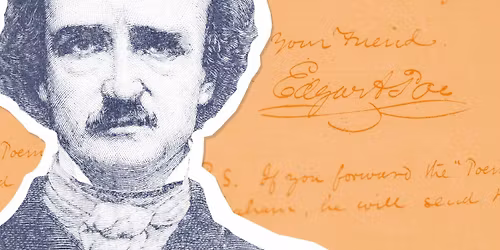 your friend.
Edgar A Poe
Poem
S. If you forward the "Poem
he will send